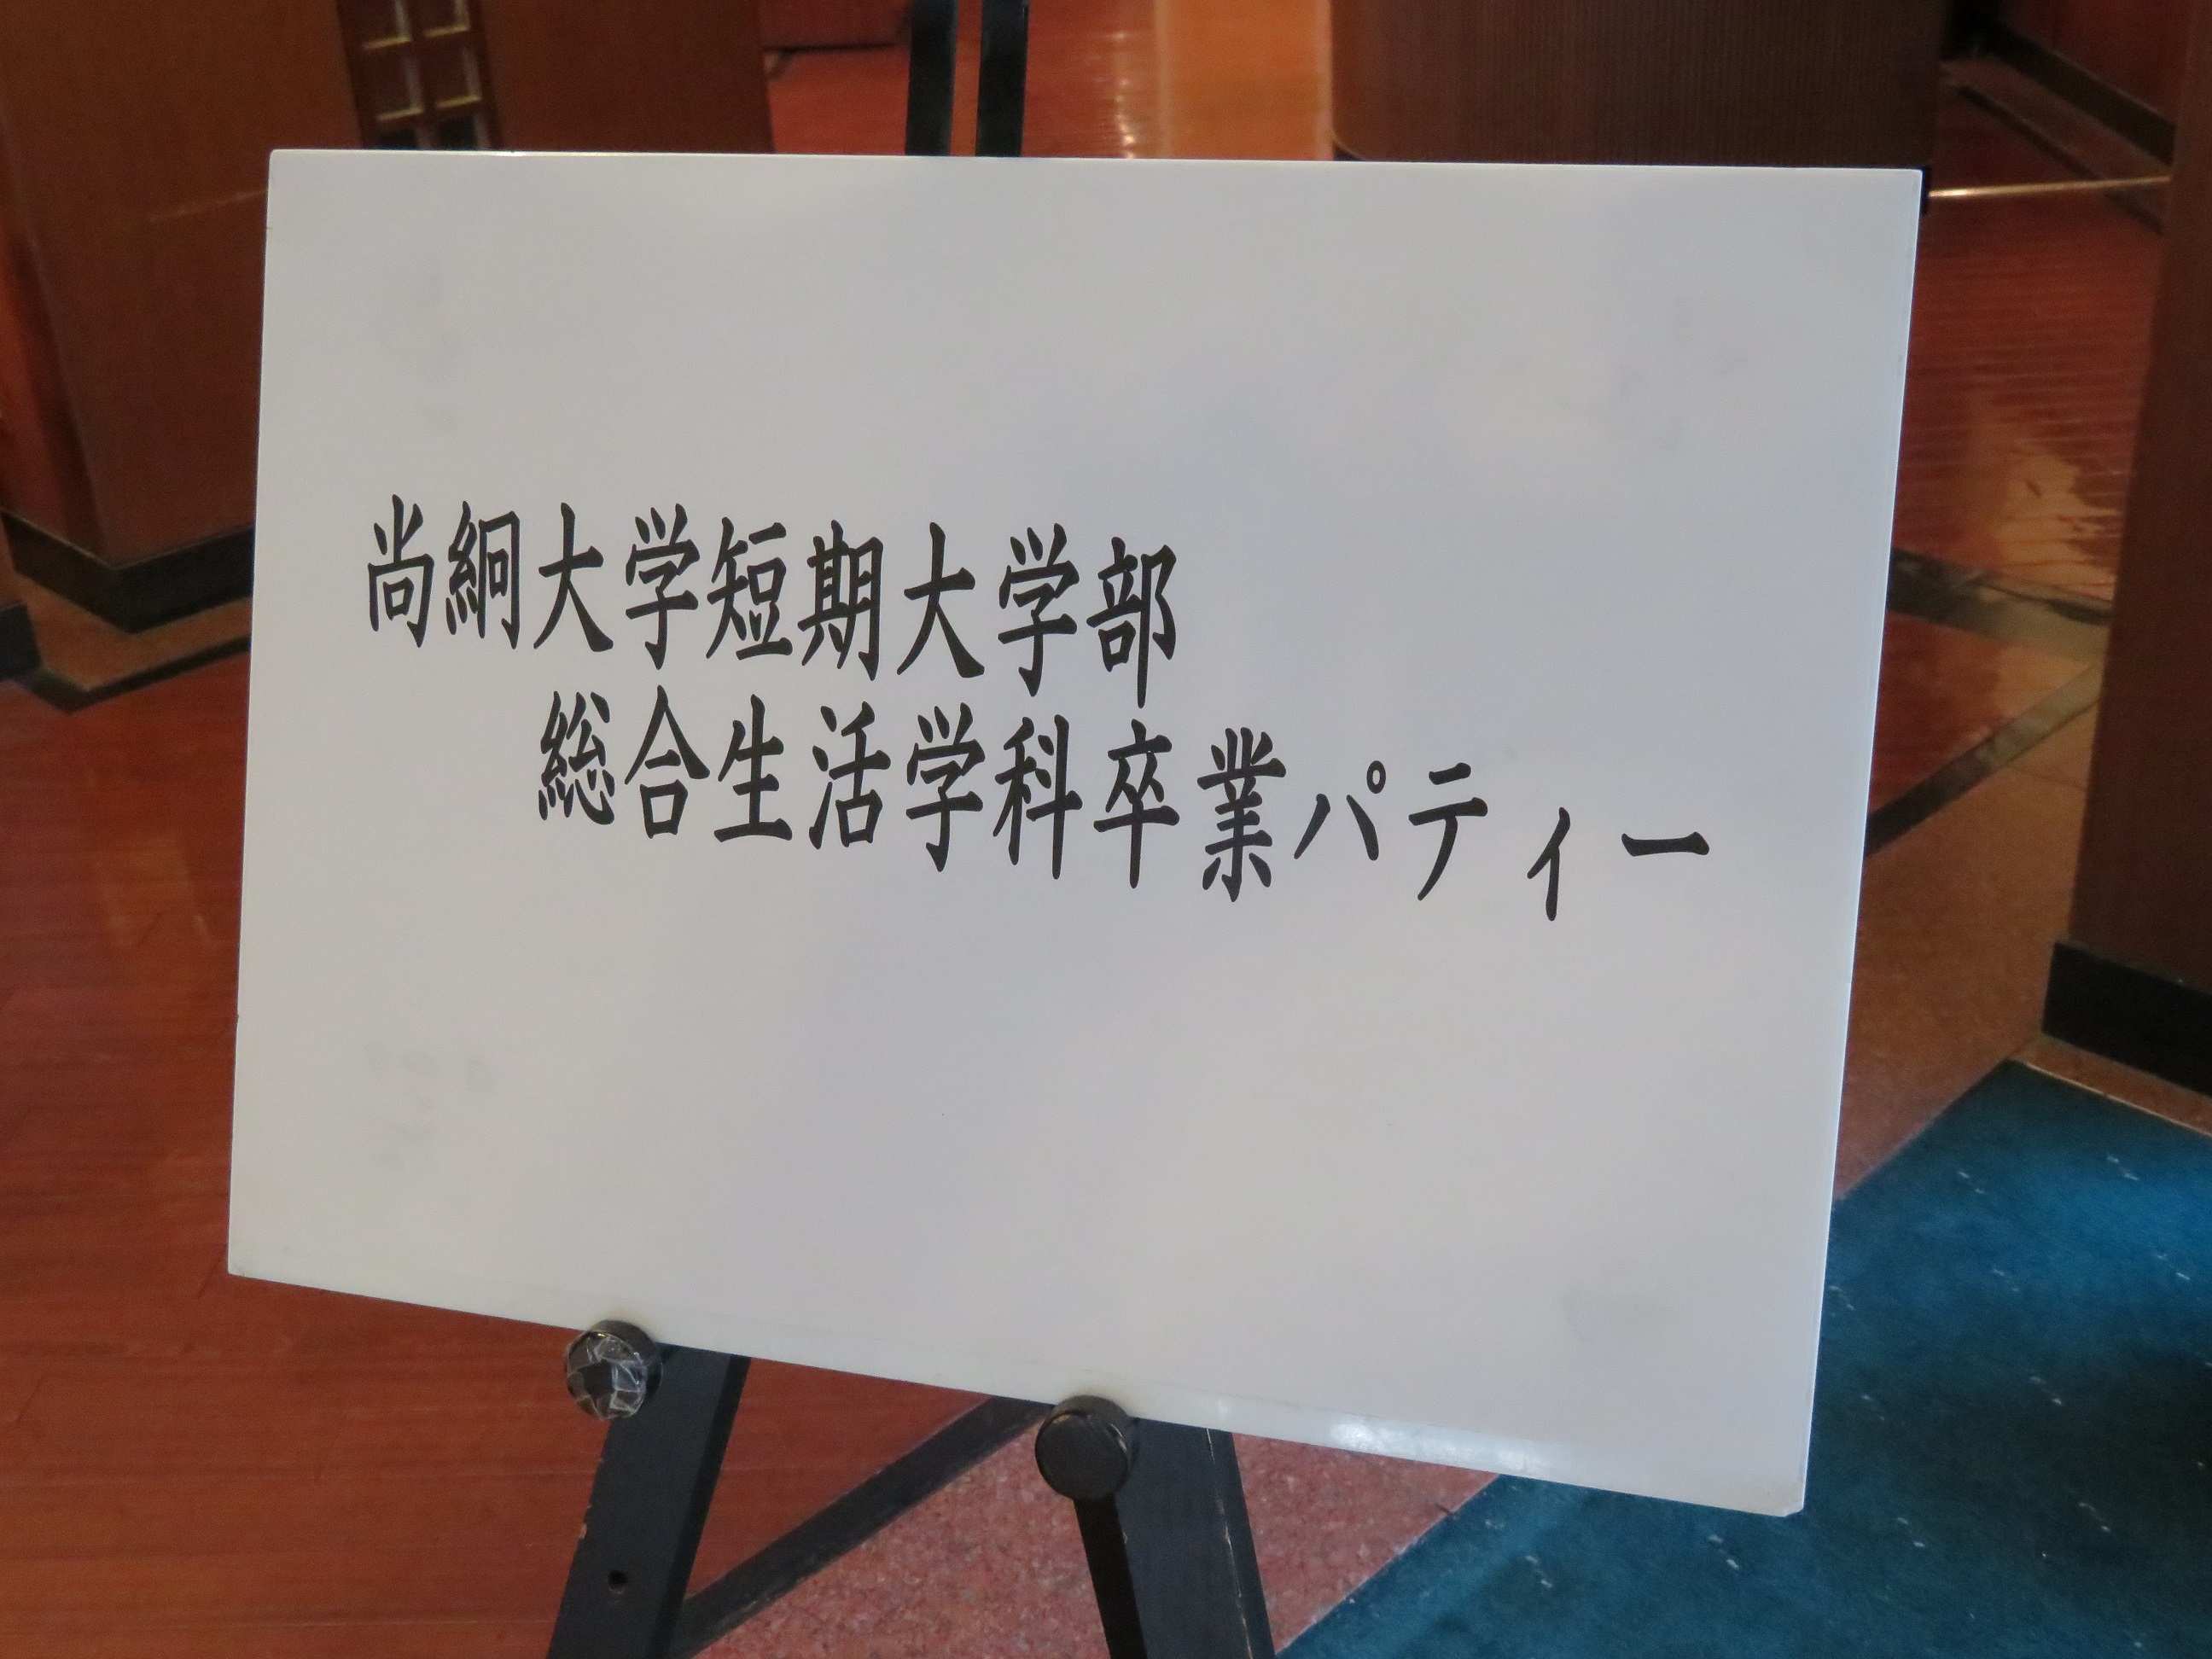 尚絅大学短期大学部
総合生活学科卒業パティー